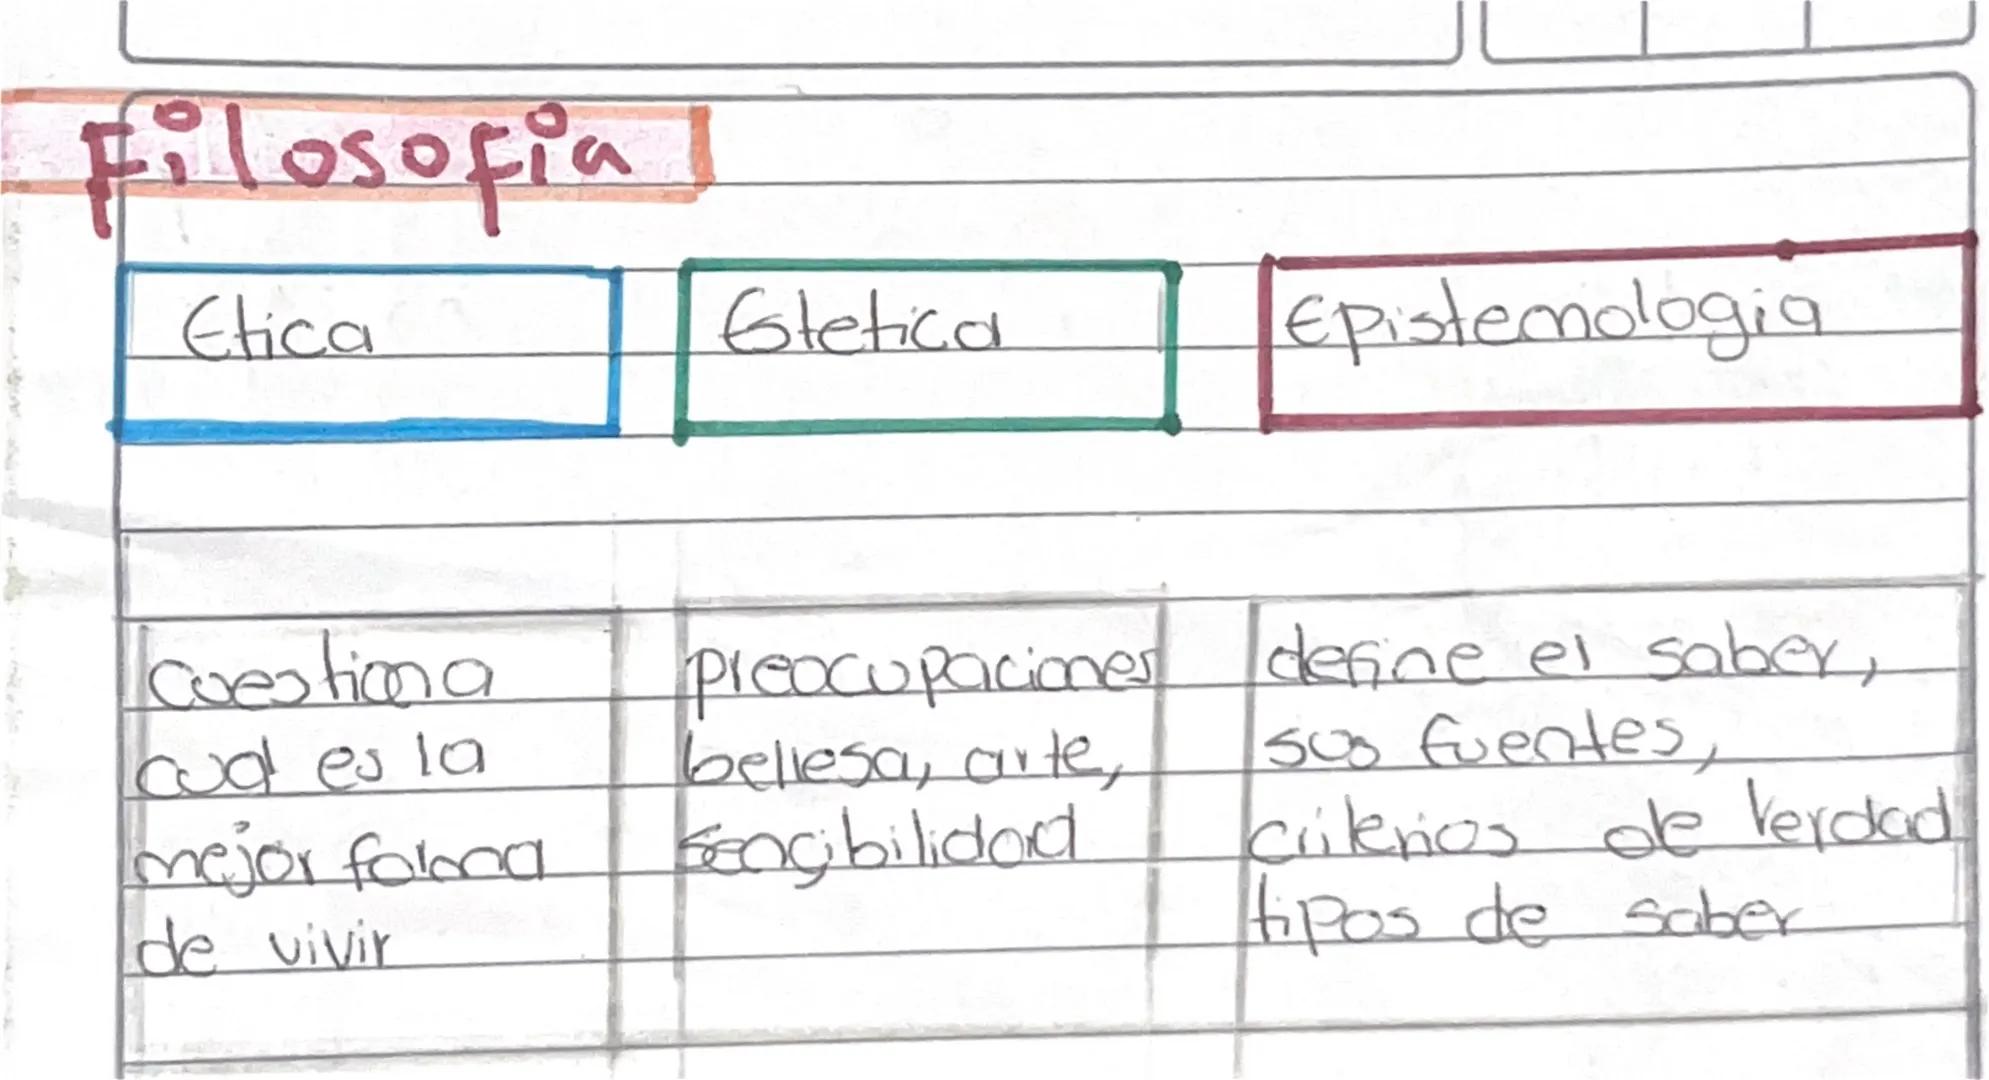 Filosofia
Etica
Estetica
Epistemologia
cuestiona
cual es la
mejor forma
de vivir
preocupaciones
bellesa, arte,
sencibilidad
define el saber,
sus fuentes,
criterios de verdad
tipos de saber